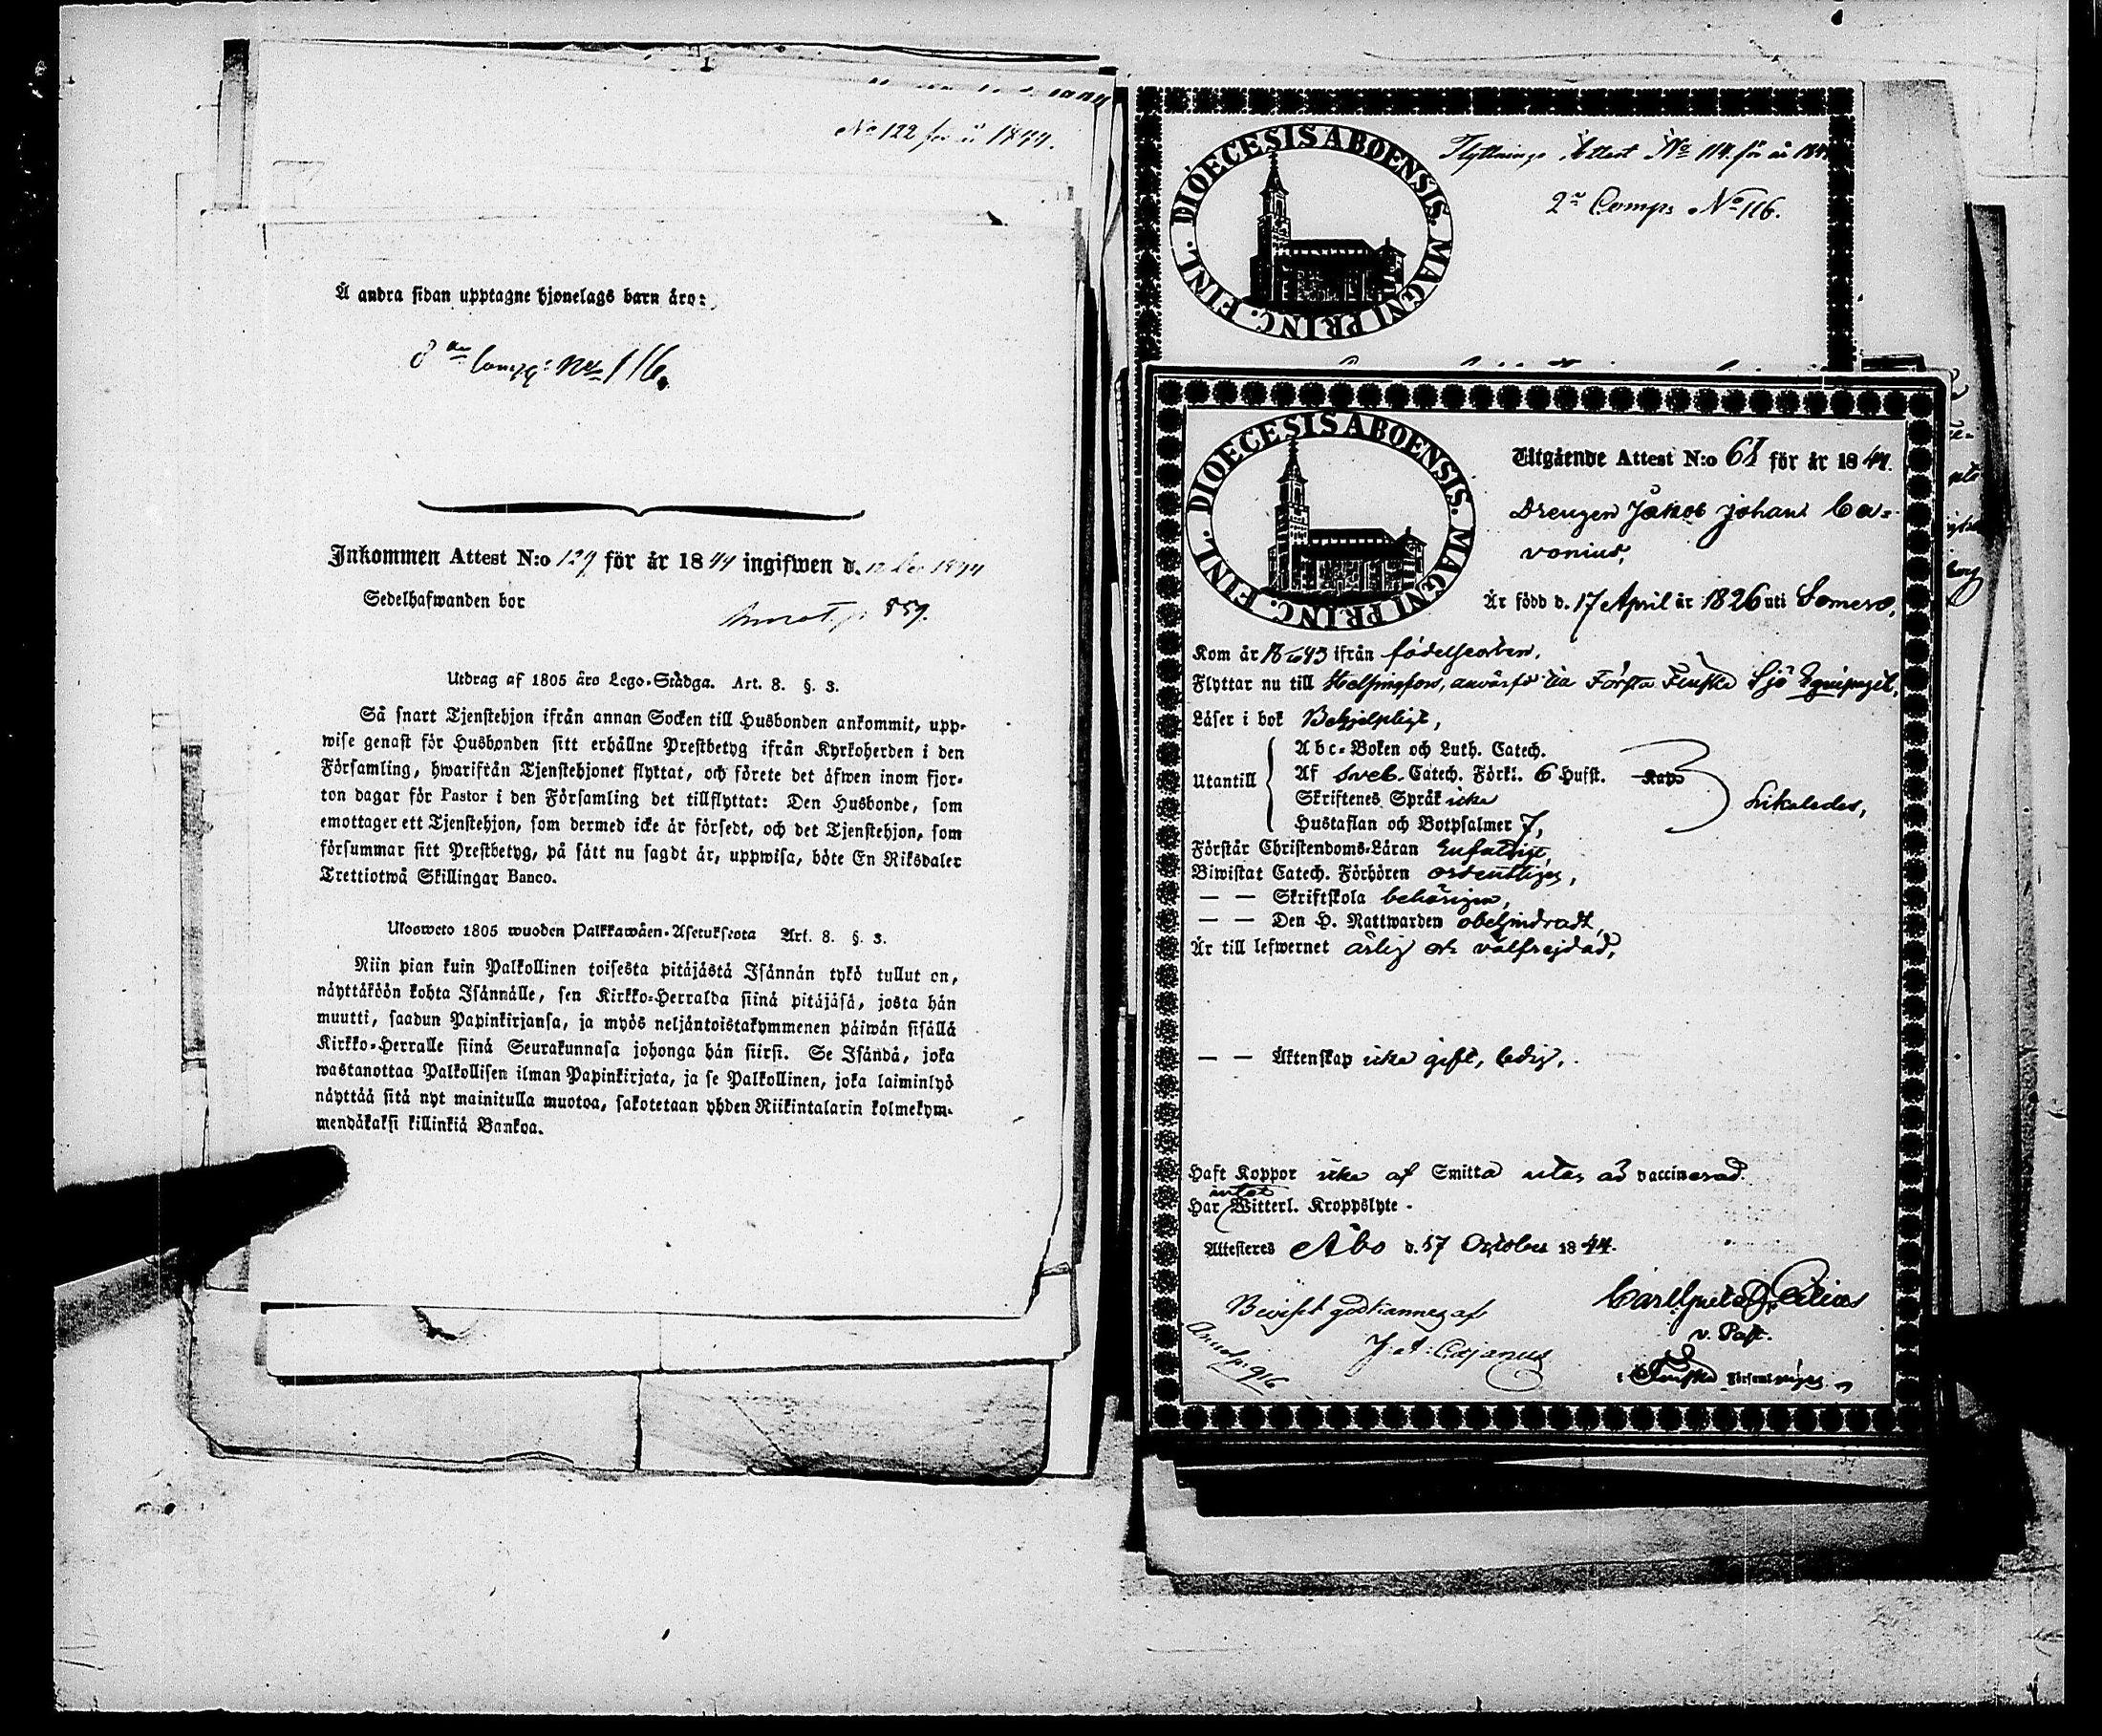 No 122 för år 1844.
Å andra sidan upptagne hjonelags barn äro:
8de Comp: No 116.
Inkommen Attest N:o 129 för år 1844 ingifwen d. 12 Dec 1844
Sedelhafwanden bor
Annot. p. 559.
Utdrag af 1805 års Lego-Stådga. Art. 8. §. 3.
Så snart Tjenstehjon ifrån annan Socken till Husbonden ankommit, upp-
wise genast för Husbonden sitt erhållne Prestbetyg ifrån Kyrkoherden i den
Församling, hwarifrån Tjenstehjonet flyttat, och förete det äfwen inom fjor-
ton dagar för Pastor i den Församling det tillflyttat: Den Husbonde, som
emottager ett Tjenstehjon, som dermed icke är försedt, och det Tjenstehjon, som
försummar sitt Prestbetyg, på sätt nu sagdt är, uppwisa, böte En Riksdaler
Trettiotwå Skillingar Banco.
Ulosweto 1805 wuoden Palkkawäen-Asetuksesta Art. 8. §. 3.
Niin pian kuin Palkollinen toisesta pitäjästä Isännän tykö tullut on,
näyttäköön kohta Isännälle, sen Kirkko-Herralda siinä pitäjäsä, josta hän
muutti, saadun Papinkirjansa, ja myös neljäntoistakymmenen päiwän sisällä
Kirkko-Herralle siinä Seurakunnasa johonga hän siirsi. Se Isändä, joka
wastanottaa Palkollisen ilman Papinkirjata, ja se Palkollinen, joka laiminlyö
näyttää sitä nyt mainitulla muotoa, sakotetaan yhden Riikintalarin kolmekym-
mendäkaksi killinkiä Bankoa.
DIOECESIS ABOENSIS. MAGNI PRINC. FINL.
Flyttnings Attest No 114. för år 184
2a Comps No 116.
DIOECESIS ABOENSIS. MAGNI PRINC. FINL.
Utgående Attest N:o 61 för år 1844.
Drengen Jakob Johans Ca-
vonius,
Är född d. 17 April år 1826 uti Somero,
Kom år 1843 ifrån födelseorten,
Flyttar nu till Helsingfors, antagen till Första Finska Sjö Equipaget,
Läser i bok Behjelpligt,
Abc-Boken och Luth. Catech.
Utantill Af Sveb. Catech. Förkl. 6 Hufst. Kap.
Skriftenes Språk icke
Hustaflan och Botpsalmer 7,
Likaledes,
Förstår Christendoms-Läran Enfaldigt,
Biwistat Catech. Förhören ordentligen,
— — Skriftskola behörigen,
— — Den H. Nattwarden obehindradt,
Är till lefwernet ärlig och välfrejdad,
— — Äktenskap icke gift, ledig,
Haft Koppor icke af Smitta utan är vaccinerad.
intet
Har Witterl. Kroppslyte.
Attesteres Åbo d. 17 October 1844.
Beviset godkännes af
Annot p. 916
v. Past.
i Finska Församlingen.